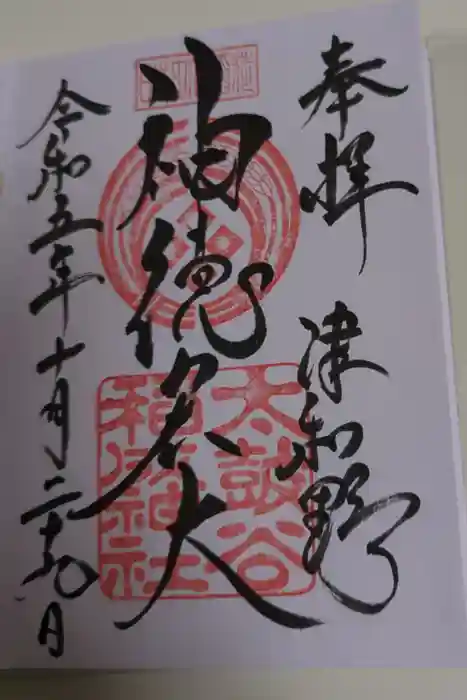 奉拝 津和野
神徳宏大
令和五年十月二十九日
太皷谷
稲成神社